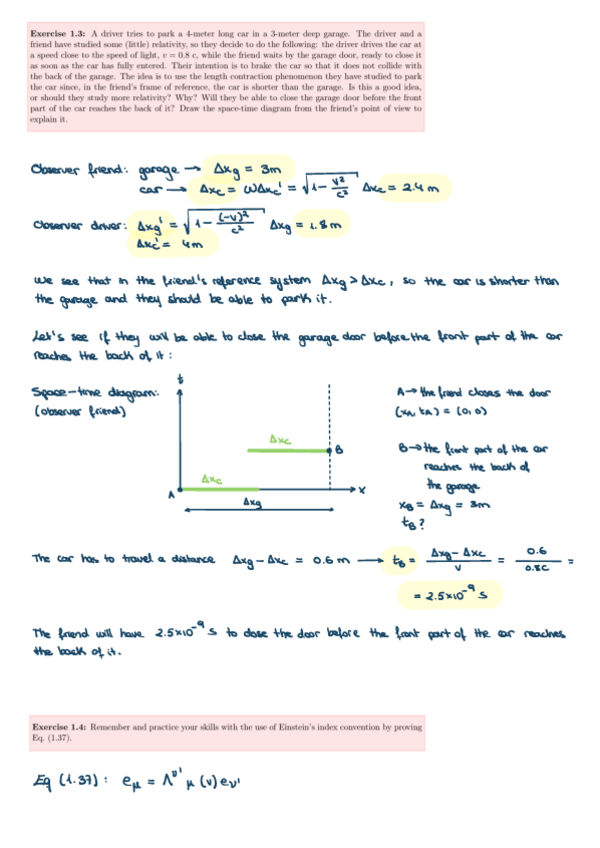 Exercise 1.3: A driver tries to park a 4-meter long car in a 3-meter deep garage. The driver and a
friend have studied some (little) relativity, so they decide to do the following: the driver drives the car at
a speed close to the speed of light, v = 0.8 c, while the friend waits by the garage door, ready to close it
as soon as the car has fully entered. Their intention is to brake the car so that it does not collide with
the back of the garage. The idea is to use the length contraction phenomenon they have studied to park
the car since, in the friend's frame of reference, the car is shorter than the garage. Is this a good idea,
or should they study more relativity? Why? Will they be able to close the garage door before the front
part of the car reaches the back of it? Draw the space-time diagram from the friend's point of view to
explain it.
Observer friend: garage → Δxg = 3m
car → Δxc = ωΔxc' = √(1 - v²/c²) Δxc = 2.4 m
Observer driver: Δxg' = √(1 - (-v)²/c²) Δxg = 1.8 m
Δxc' = 4m
we see that in the friend's reference system Δxg > Δxc, so the car is shorter than
the garage and they should be able to park it.
Let's see if they will be able to close the garage door before the front part of the car
reaches the back of it:
Space-time diagram:
(observer friend)
t
Δxc
B
Δxc
A
x
Δxg
A → the friend closes the door
(xA, tA) = (0, 0)
B → the front part of the car
reaches the back of
the garage
xB = Δxg = 3m
tB?
The car has to travel a distance Δxg - Δxc = 0.6 m → tB = (Δxg - Δxc)/v = 0.6/0.8c =
= 2.5×10⁻⁹ s
The friend will have 2.5×10⁻⁹ s to close the door before the front part of the car reaches
the back of it.
Exercise 1.4: Remember and practice your skills with the use of Einstein's index convention by proving
Eq. (1.37).
Eq (1.37): eμ = Λ^ν' μ (v) eν'